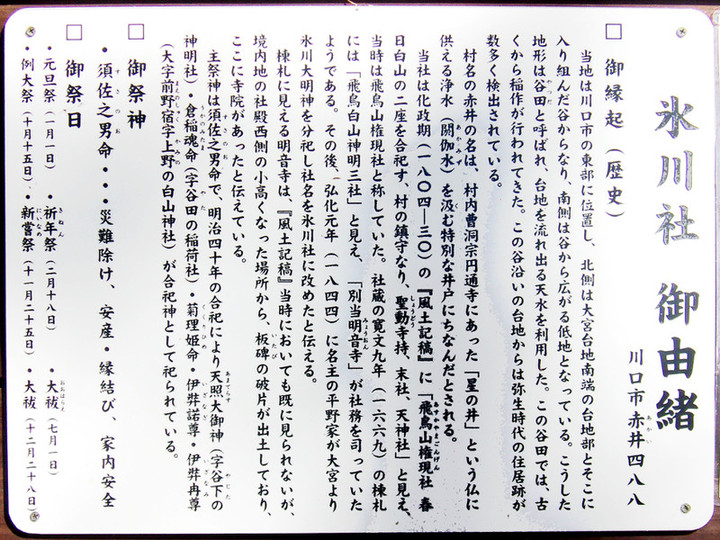 氷川社 御由緒
川口市赤井四八八
□ 御縁起(歴史)
当地は川口市の東部に位置し、北側は大宮台地南端の台地部とそこに
入り組んだ谷からなり、南側は谷から広がる低地となっている。こうした
地形は谷田と呼ばれ、台地を流れ出る天水を利用した。この谷田では、古
くから稲作が行われてきた。この谷沿いの台地からは弥生時代の住居跡が
数多く検出されている。
村名の赤井の名は、村内曹洞宗円通寺にあった「星の井」という仏に
供える浄水(閼伽水)を汲む特別な井戸にちなんだとされる。
当社は化政期(一八〇四―三〇)の『風土記稿』に「飛鳥山権現社 春
日白山の二座を合祀す、村の鎮守なり、聖動寺持、末社、天神社」と見え、
当時は飛鳥山権現社と称していた。社蔵の寛文九年(一六六九)の棟札
には「飛鳥白山神明三社」と見え、「別当明音寺」が社務を司っていた
ようである。その後、弘化元年(一八四四)に名主の平野家が大宮より
氷川大明神を分祀し社名を氷川社に改めたと伝える。
棟札に見える明音寺は、『風土記稿』当時においても既に見られないが、
境内地の社殿西側の小高くなった場所から、板碑の破片が出土しており、
ここに寺院があったと伝えている。
主祭神は須佐之男命で、明治四十年の合祀により天照大御神(字谷下の
神明社)・倉稲魂命(字谷田の稲荷社)・菊理姫命・伊弉諾尊・伊弉冉尊
(大字前野宿字上野の白山神社)が合祀神として祀られている。
□ 御祭神
・須佐之男命・・・災難除け、安産・縁結び、家内安全
□ 御祭日
・元旦祭(一月一日)・祈年祭(二月十八日)・大祓(七月一日)
・例大祭(十月十五日)・新嘗祭(十一月二十五日)・大祓(十二月二十八日)